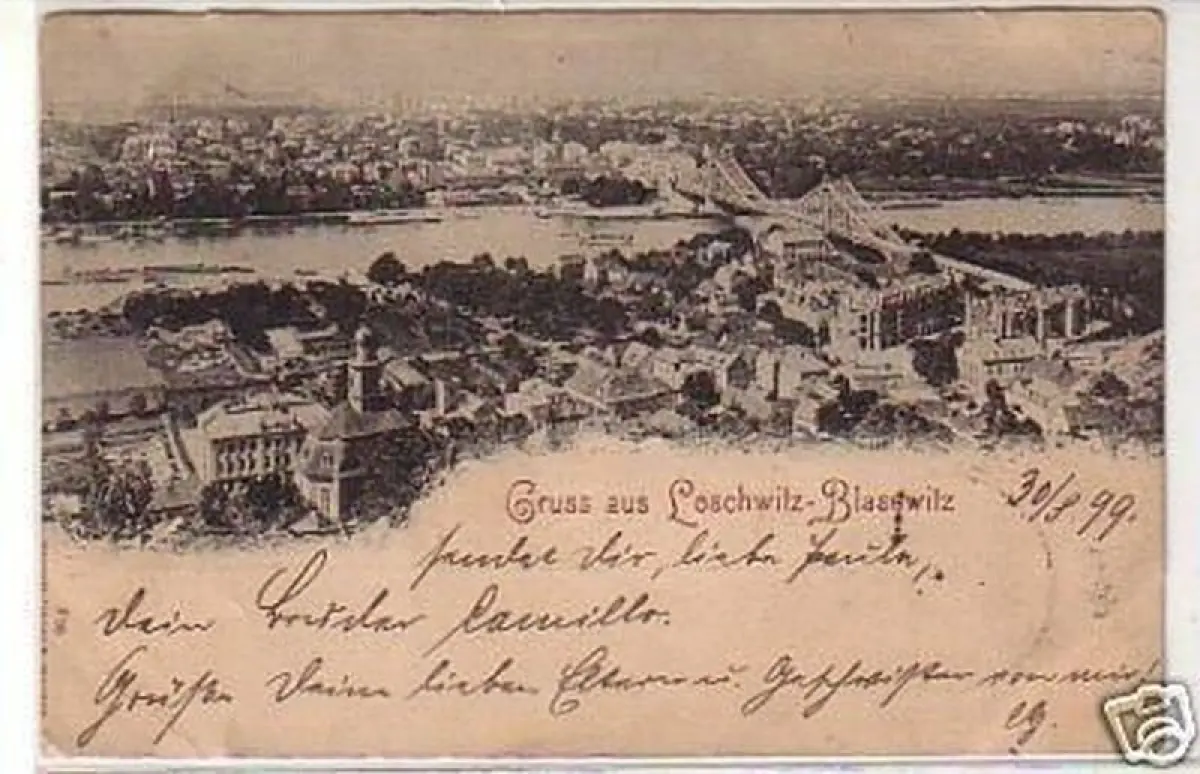 Gruss aus Loschwitz-Blasewitz
30/8 99.
sendet Dir, liebe Paula,
Dein Bruder Camillo.
Grüße Deine lieben Eltern u. Geschwister von mir!